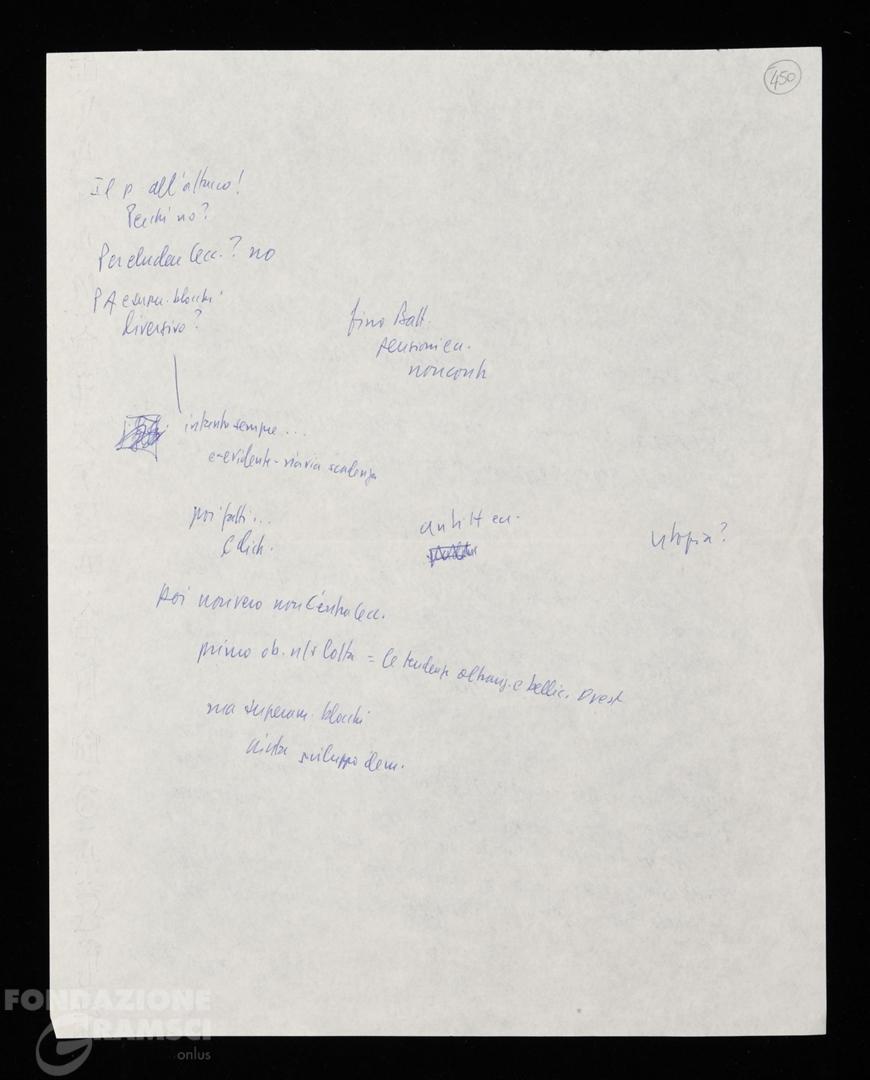 450
Il p all'attacco!
Perché no?
Per eludere Cecc.? no
PA e super. blocchi
diversivo?
fino Batt.
tensioni ecc.
non contr
intanto sempre...
e-evidente - via via scadenza
poi fatti...
C Dich.
utopia?
Poi non vero non C'entra Cecc.
primo ob. n/s lotta = le tendenze oltranz. e bellic. Ovest
ma superam. blocchi
aiuta sviluppo dem.
FONDAZIONE
GRAMSCI
onlus